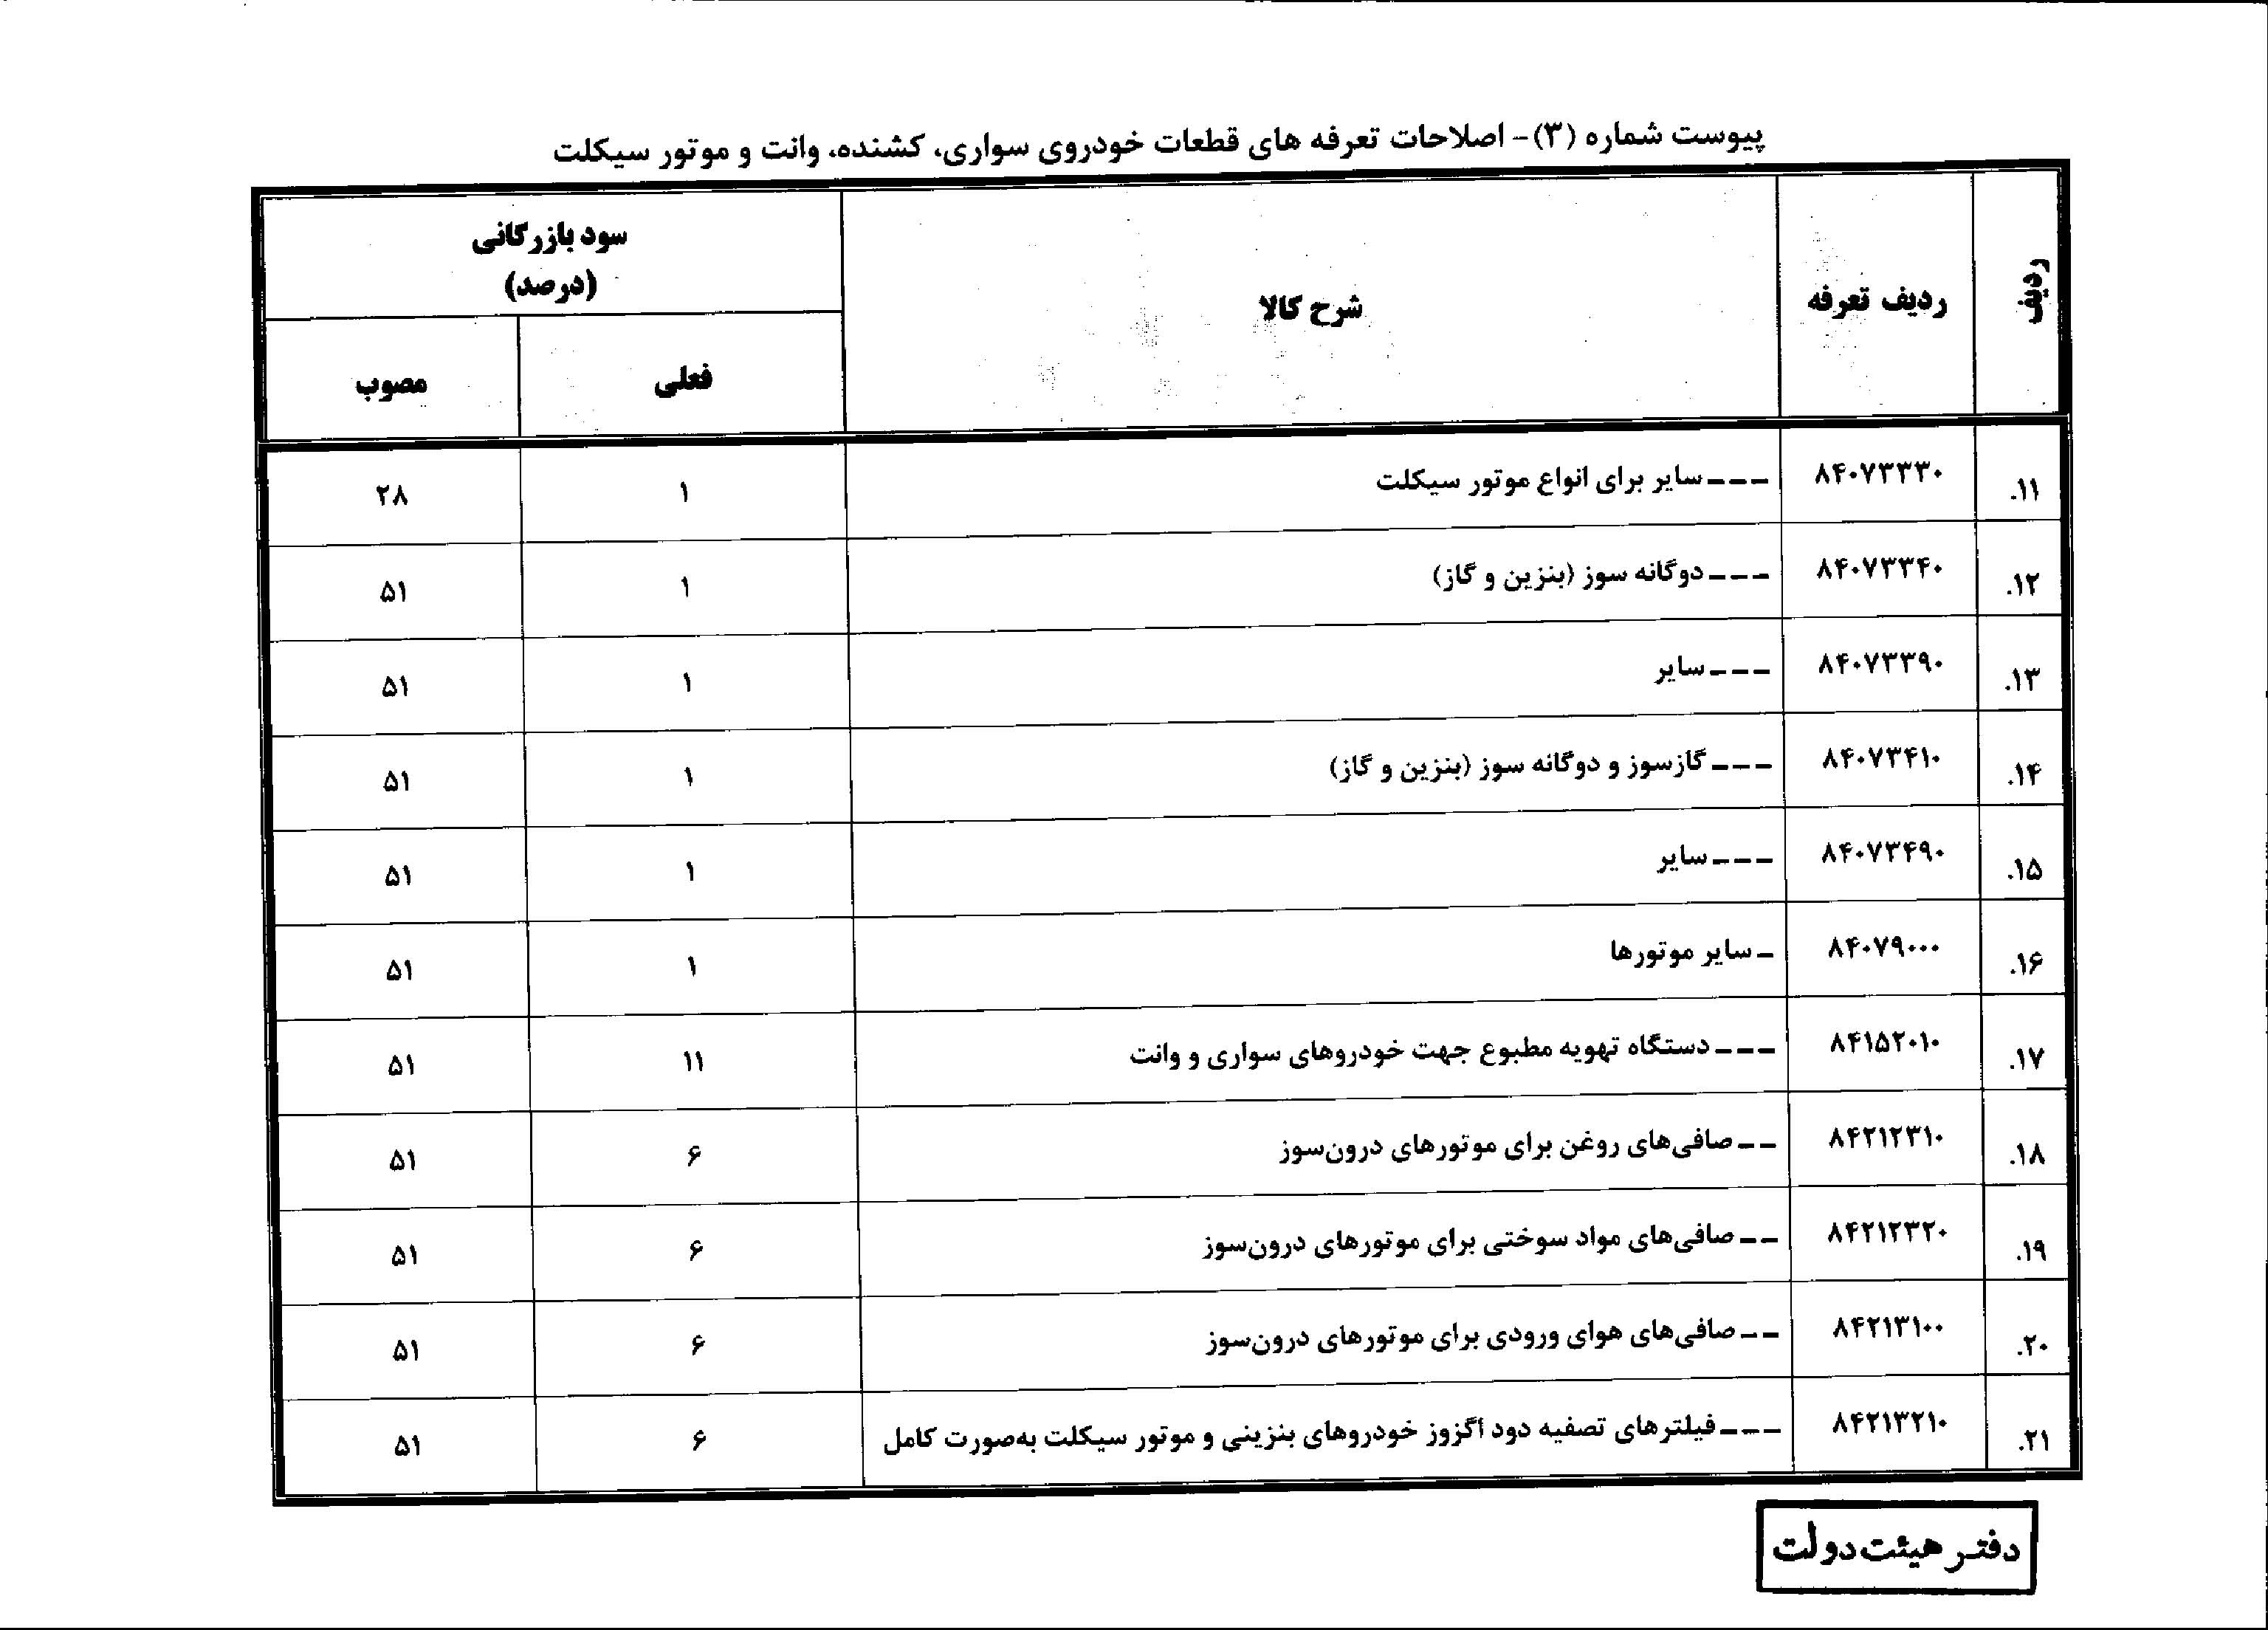 پیوست شماره (۳)- اصلاحات تعرفه های قطعات خودروی سواری، کشنده، وانت و موتور سیکلت
ردیف ردیف تعرفه شرح کالا سود بازرگانی (درصد)
فعلی مصوب
۱۱. ۸۴۰۷۳۳۳۰ ---سایر برای انواع موتور سیکلت ۱ ۲۸
۱۲. ۸۴۰۷۳۳۴۰ ---دوگانه سوز (بنزین و گاز) ۱ ۵۱
۱۳. ۸۴۰۷۳۳۹۰ ---سایر ۱ ۵۱
۱۴. ۸۴۰۷۳۴۱۰ ---گازسوز و دوگانه سوز (بنزین و گاز) ۱ ۵۱
۱۵. ۸۴۰۷۳۴۹۰ ---سایر ۱ ۵۱
۱۶. ۸۴۰۷۹۰۰۰ -سایر موتورها ۱ ۵۱
۱۷. ۸۴۱۵۲۰۱۰ ---دستگاه تهویه مطبوع جهت خودروهای سواری و وانت ۱۱ ۵۱
۱۸. ۸۴۲۱۲۳۱۰ --صافی‌های روغن برای موتورهای درون‌سوز ۶ ۵۱
۱۹. ۸۴۲۱۲۳۲۰ --صافی‌های مواد سوختی برای موتورهای درون‌سوز ۶ ۵۱
۲۰. ۸۴۲۱۳۱۰۰ --صافی‌های هوای ورودی برای موتورهای درون‌سوز ۶ ۵۱
۲۱. ۸۴۲۱۳۲۱۰ ---فیلترهای تصفیه دود اگزوز خودروهای بنزینی و موتور سیکلت به‌صورت کامل ۶ ۵۱
دفتر هیئت دولت